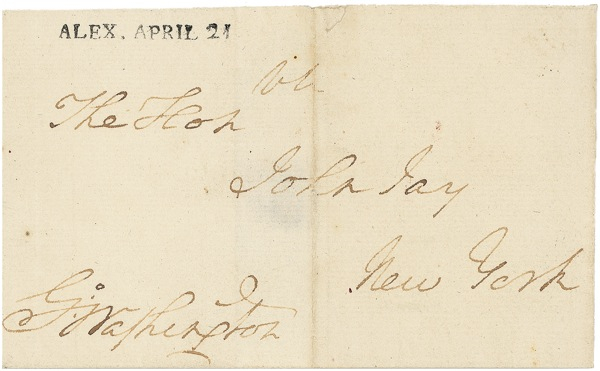 ALEX. APRIL 21
The Hon ble
John Jay
New York
Go: Washington